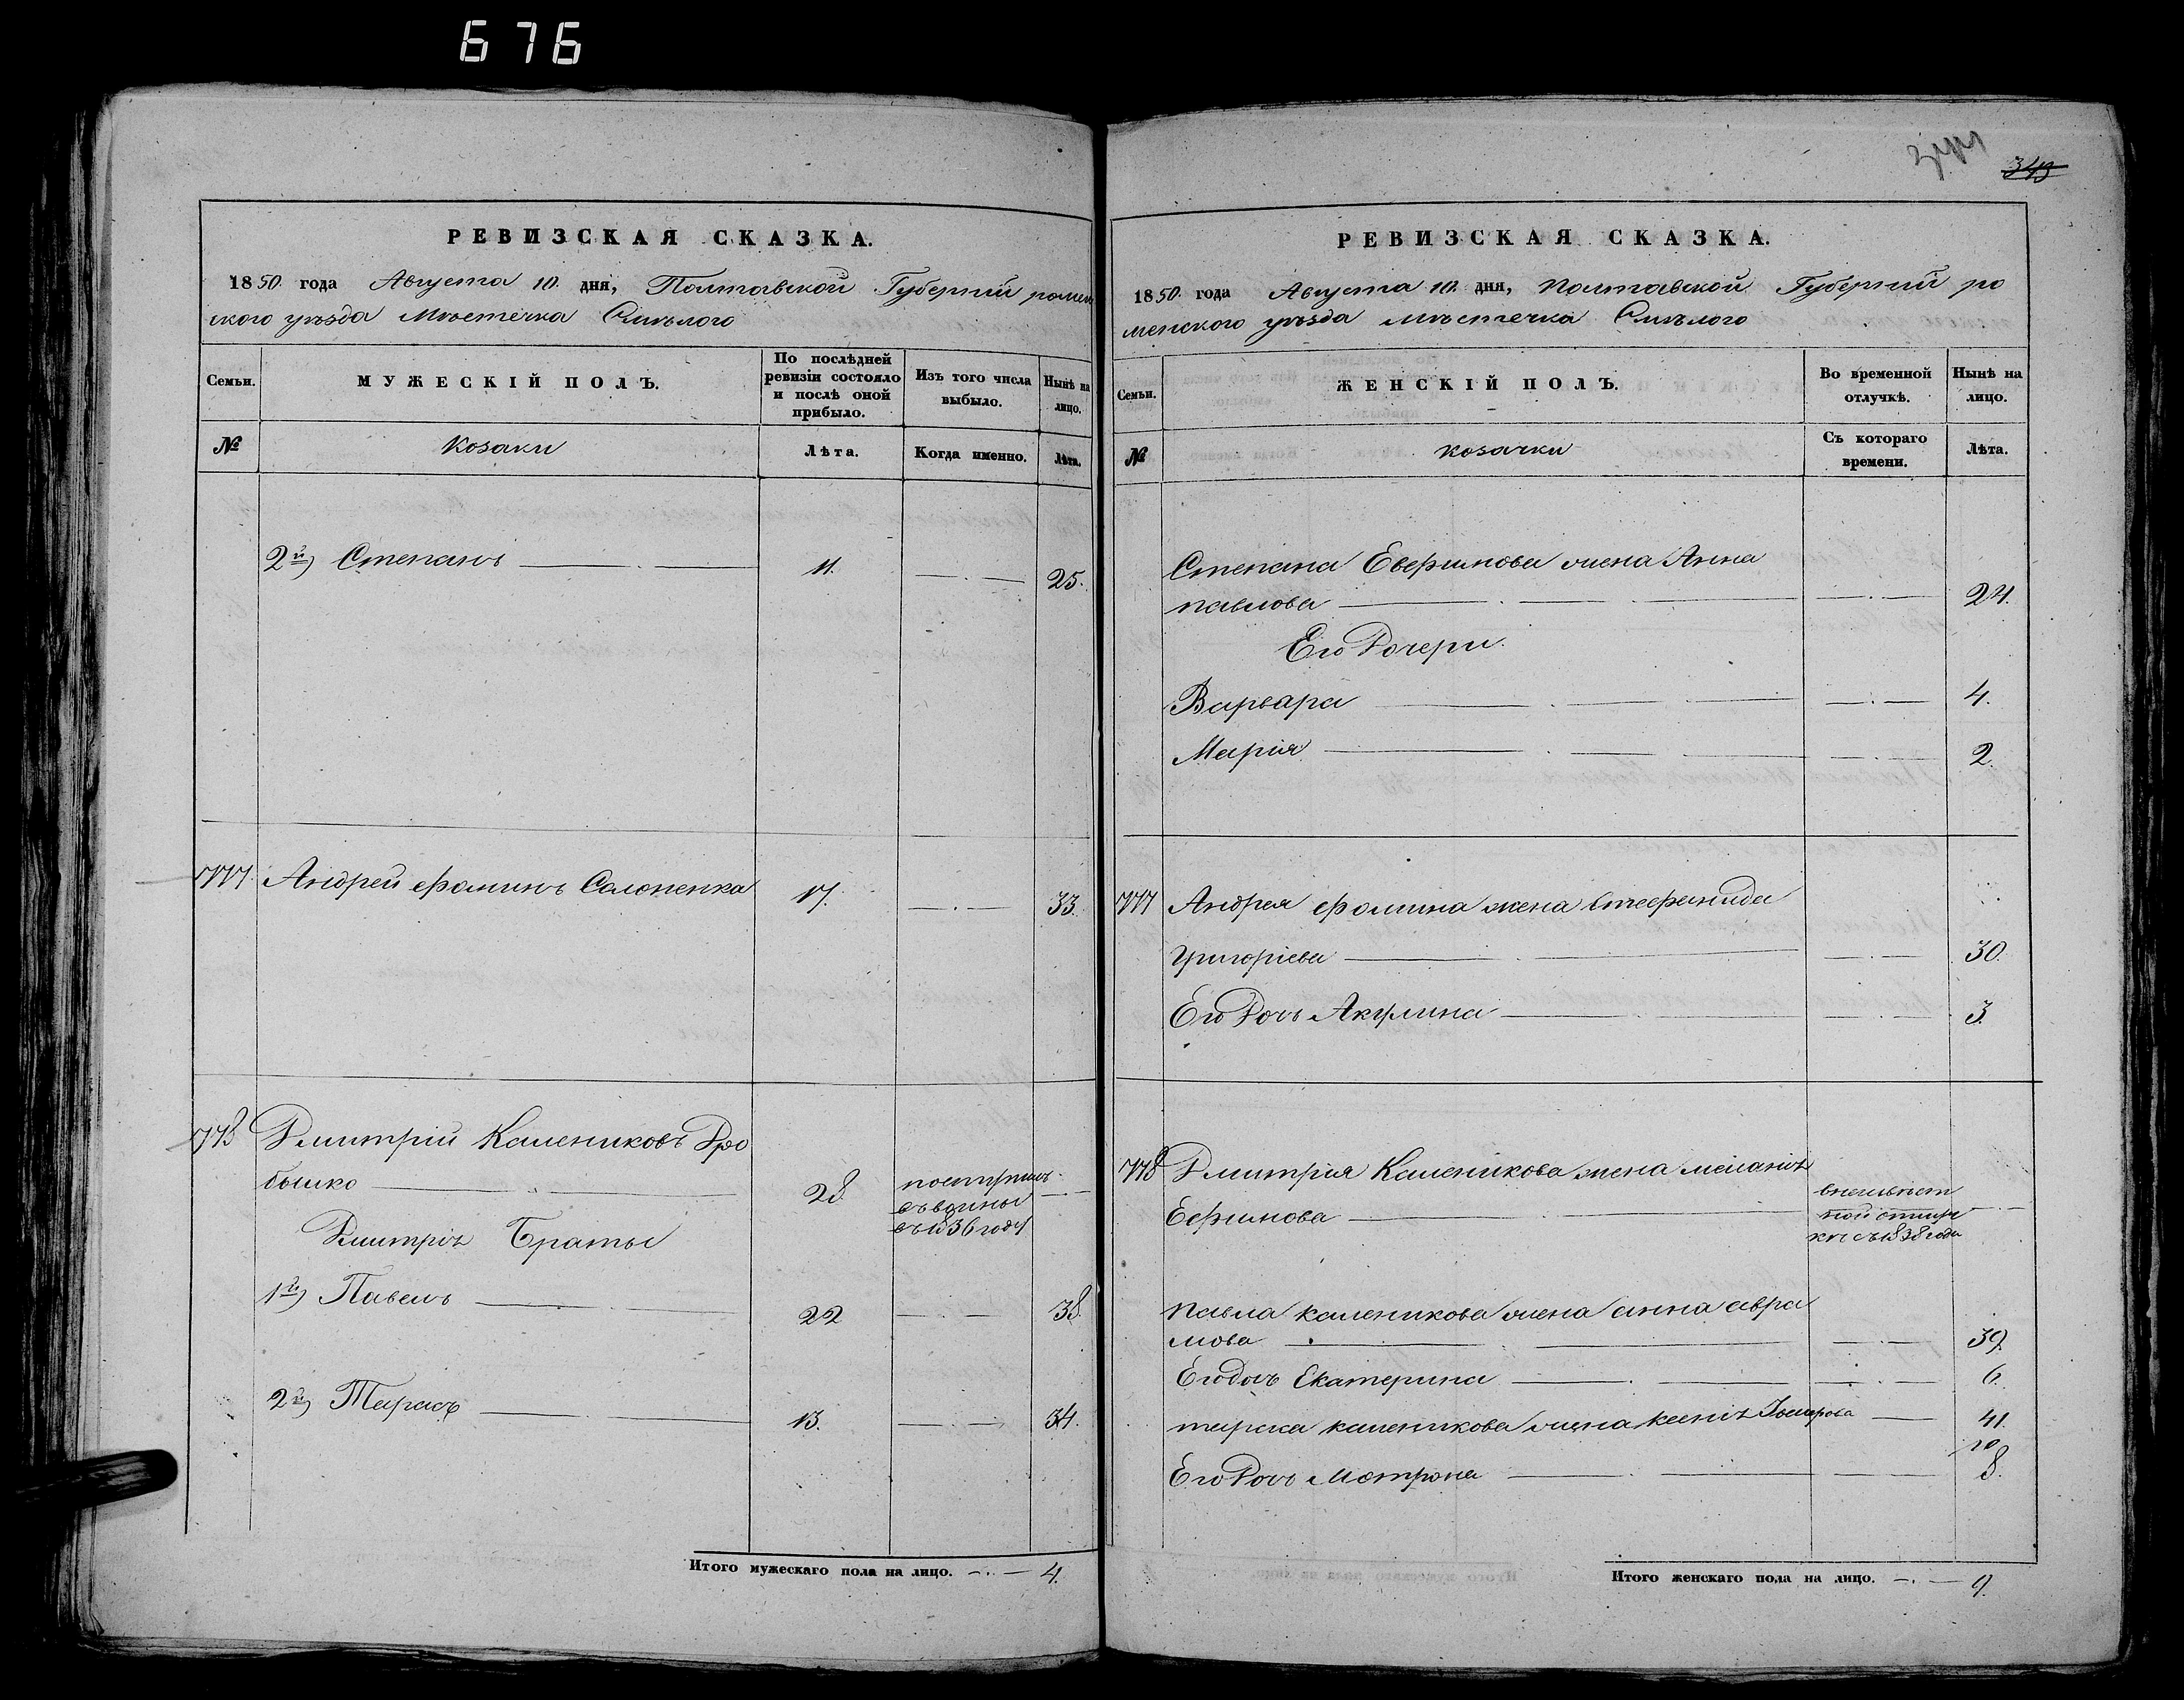 676
РЕВИЗСКАЯ СКАЗКА.
1850. года Августа 10. дня, Полтавской Губерний ромен
ского уѣзда Мѣстечка Смѣлого
Семьи.
МУЖЕСКІЙ ПОЛЪ.
По послѣдней
ревизіи состояло
и послѣ оной
прибыло.
Изъ того числа
выбыло.
Нынѣ на
лицо.
№
Козаки
Лѣта.
Когда именно.
Лѣта.
2й) Степанъ 11. 25.
777. Андрей Фоминъ Солопенка 17. 33.
778 Дмитрій Калениковъ Дро
бышко 28
въ 1836 году
Дмитрія Браты
1й) Павелъ 22 38.
2й) Тарасъ 13. 34.
Итого мужескаго пола на лицо. 4.
343
РЕВИЗСКАЯ СКАЗКА.
1850. года Августа 10. дня, Полтавской Губерний ро
менского уѣзда мѣстечка Смѣлого
Семьи.
ЖЕНСКІЙ ПОЛЪ.
Во временной
отлучкѣ.
Нынѣ на
лицо.
№
козачки
Съ котораго
времени.
Лѣта.
Степана Евфимова жена Анна
павлова 24.
Его Дочери.
Варвара 4.
Марія 2.
777 Андрея Фомина жена Стефанида
Григоріева 30.
Его Дочь Акулина 3.
778 Дмитрія Каленикова жена меланія
Ефимова
съ 1838 года
Павла каленикова жена анна авра
мова 39.
Его дочь Екатерина 6.
тараса каленикова жена ксенія 41.
10
Его Дочь Мотрона 8.
Итого женскаго пола на лицо. 9.